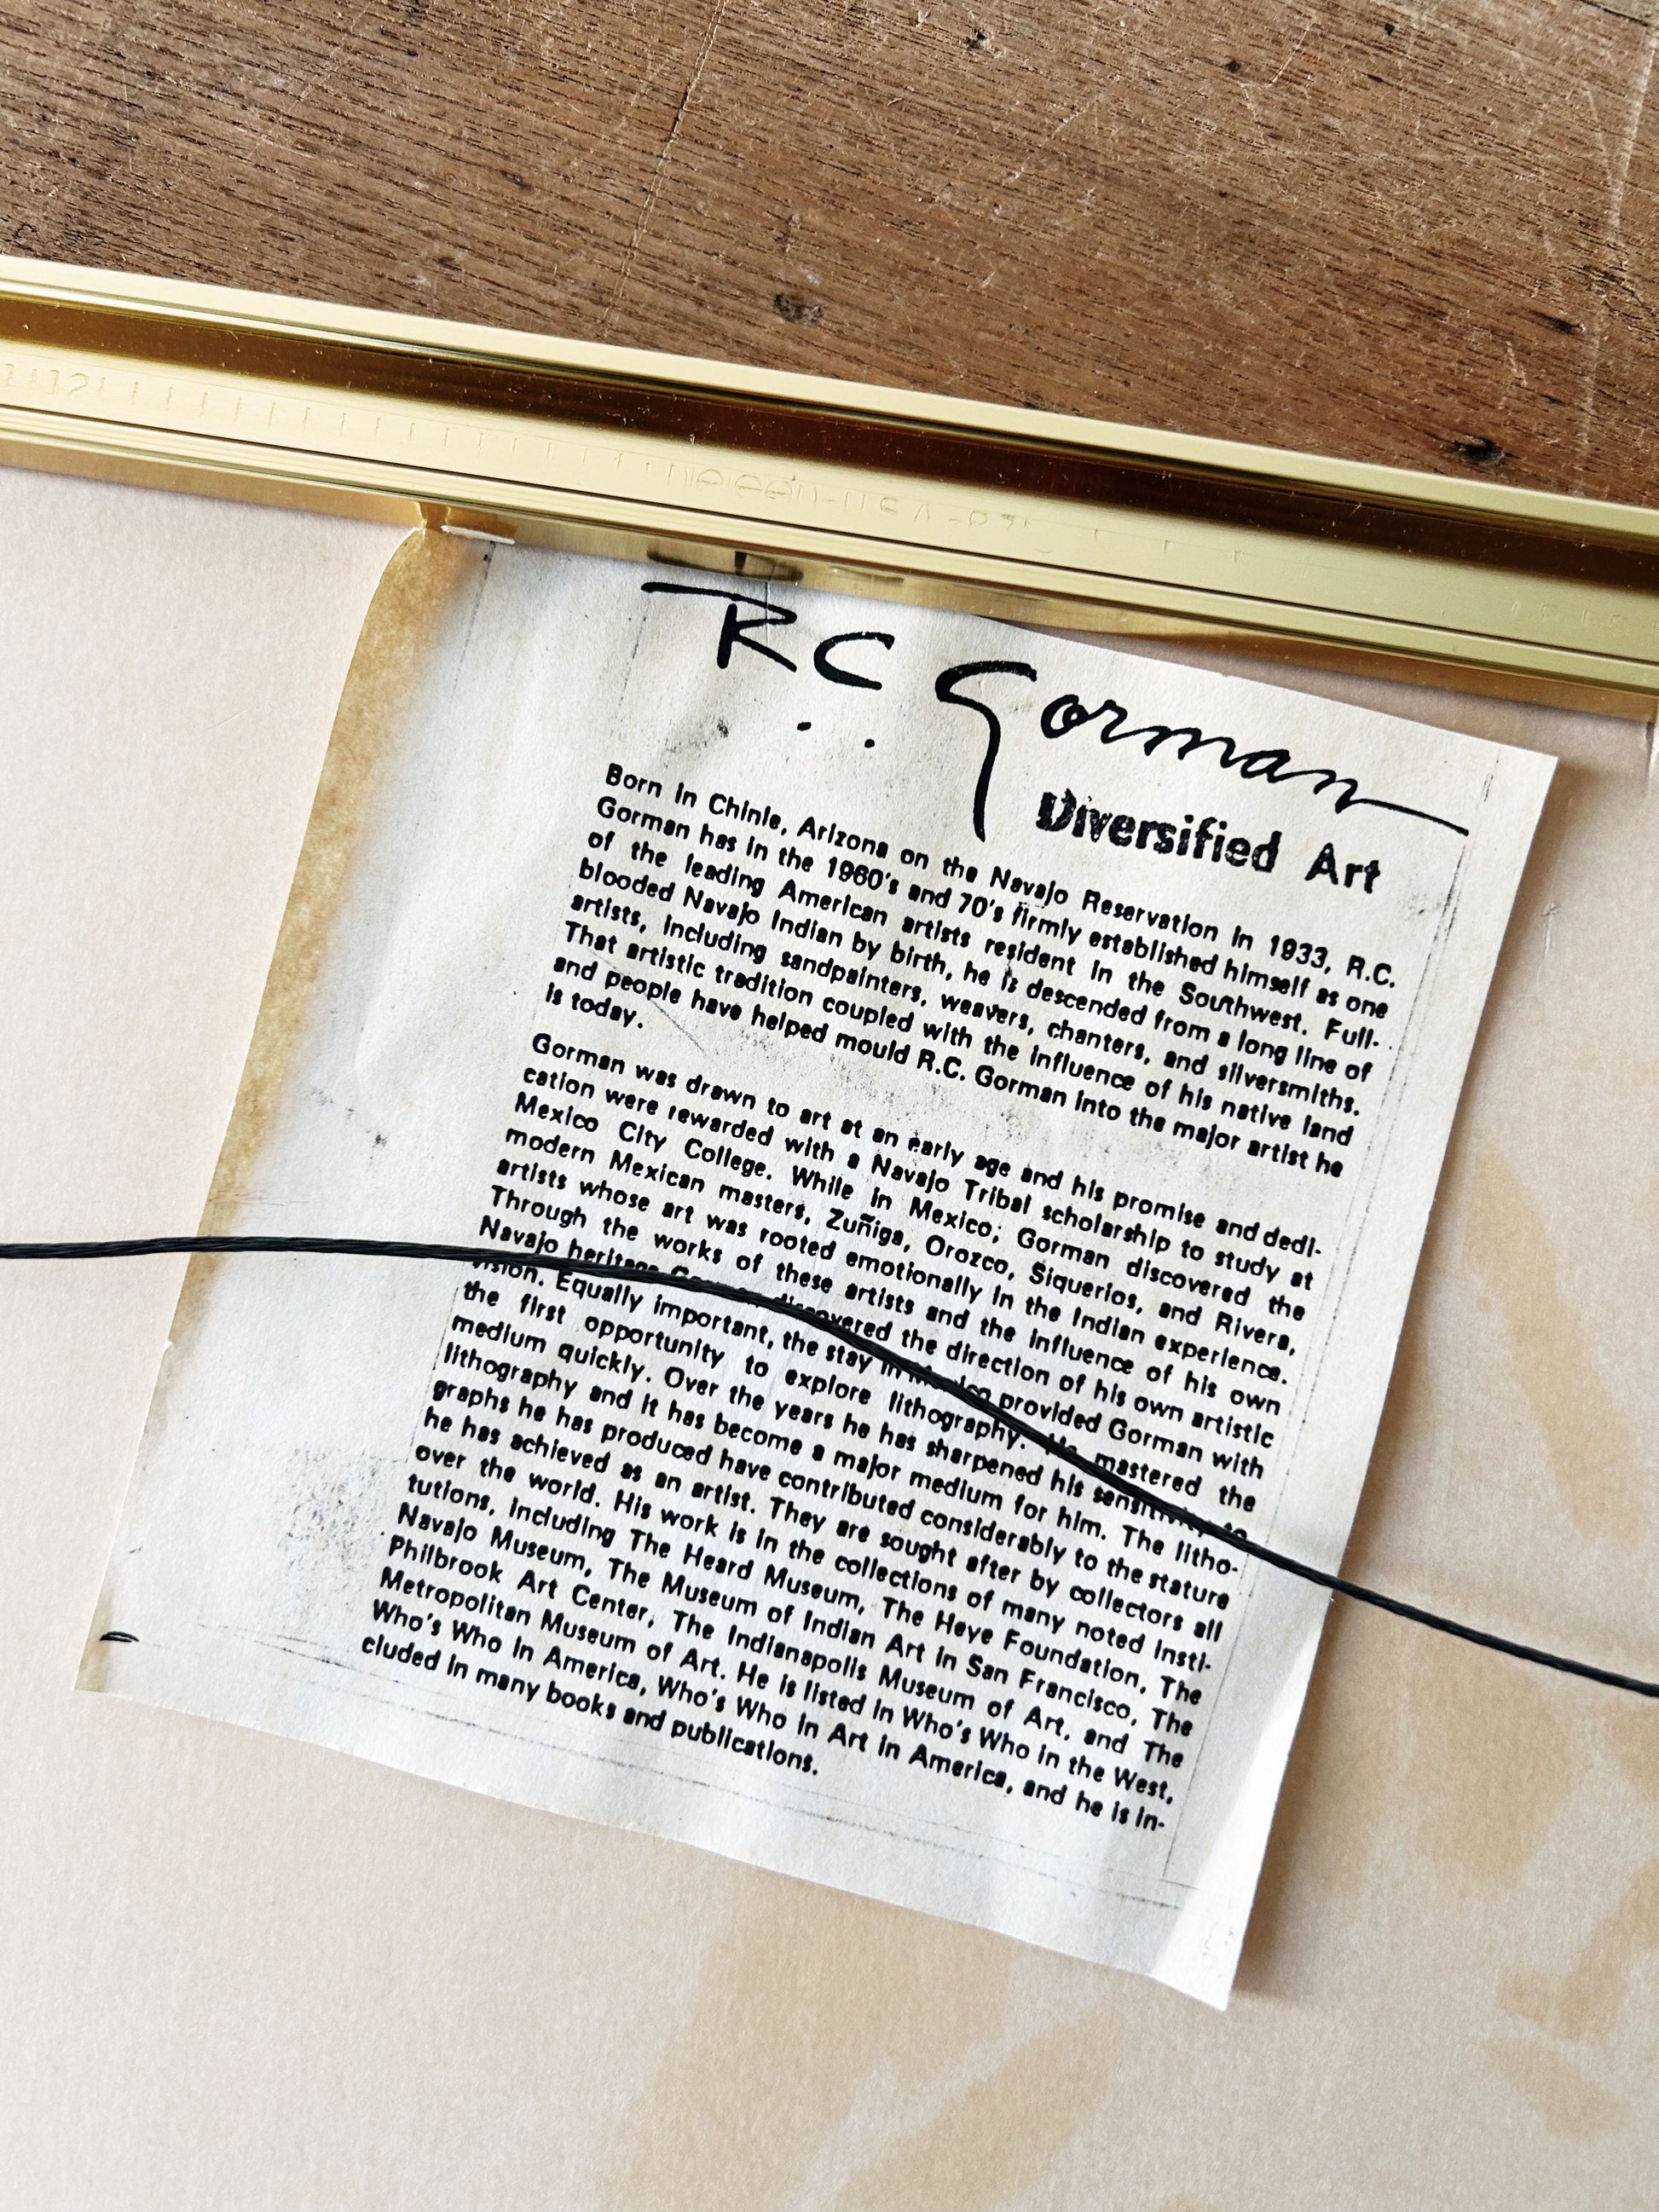 R.C. Gorman
Diversified Art
Born in Chinle, Arizona on the Navajo Reservation in 1933, R.C.
Gorman has in the 1960's and 70's firmly established himself as one
of the leading American artists resident in the Southwest. Full-
blooded Navajo Indian by birth, he is descended from a long line of
artists, including sandpainters, weavers, chanters, and silversmiths.
That artistic tradition coupled with the influence of his native land
and people have helped mould R.C. Gorman into the major artist he
is today.
Gorman was drawn to art at an early age and his promise and dedi-
cation were rewarded with a Navajo Tribal scholarship to study at
Mexico City College. While in Mexico; Gorman discovered the
modern Mexican masters, Zuñiga, Orozco, Siquerios, and Rivera,
artists whose art was rooted emotionally in the Indian experience.
Through the works of these artists and the influence of his own
Navajo heritage Gorman discovered the direction of his own artistic
vision. Equally important, the stay in Mexico provided Gorman with
the first opportunity to explore lithography. He mastered the
medium quickly. Over the years he has sharpened his sensitivity to
lithography and it has become a major medium for him. The litho-
graphs he has produced have contributed considerably to the stature
he has achieved as an artist. They are sought after by collectors all
over the world. His work is in the collections of many noted insti-
tutions, including The Heard Museum, The Heye Foundation, The
Navajo Museum, The Museum of Indian Art in San Francisco, The
Philbrook Art Center, The Indianapolis Museum of Art, and The
Metropolitan Museum of Art. He is listed in Who's Who in the West,
Who's Who in America, Who's Who in Art in America, and he is in-
cluded in many books and publications.